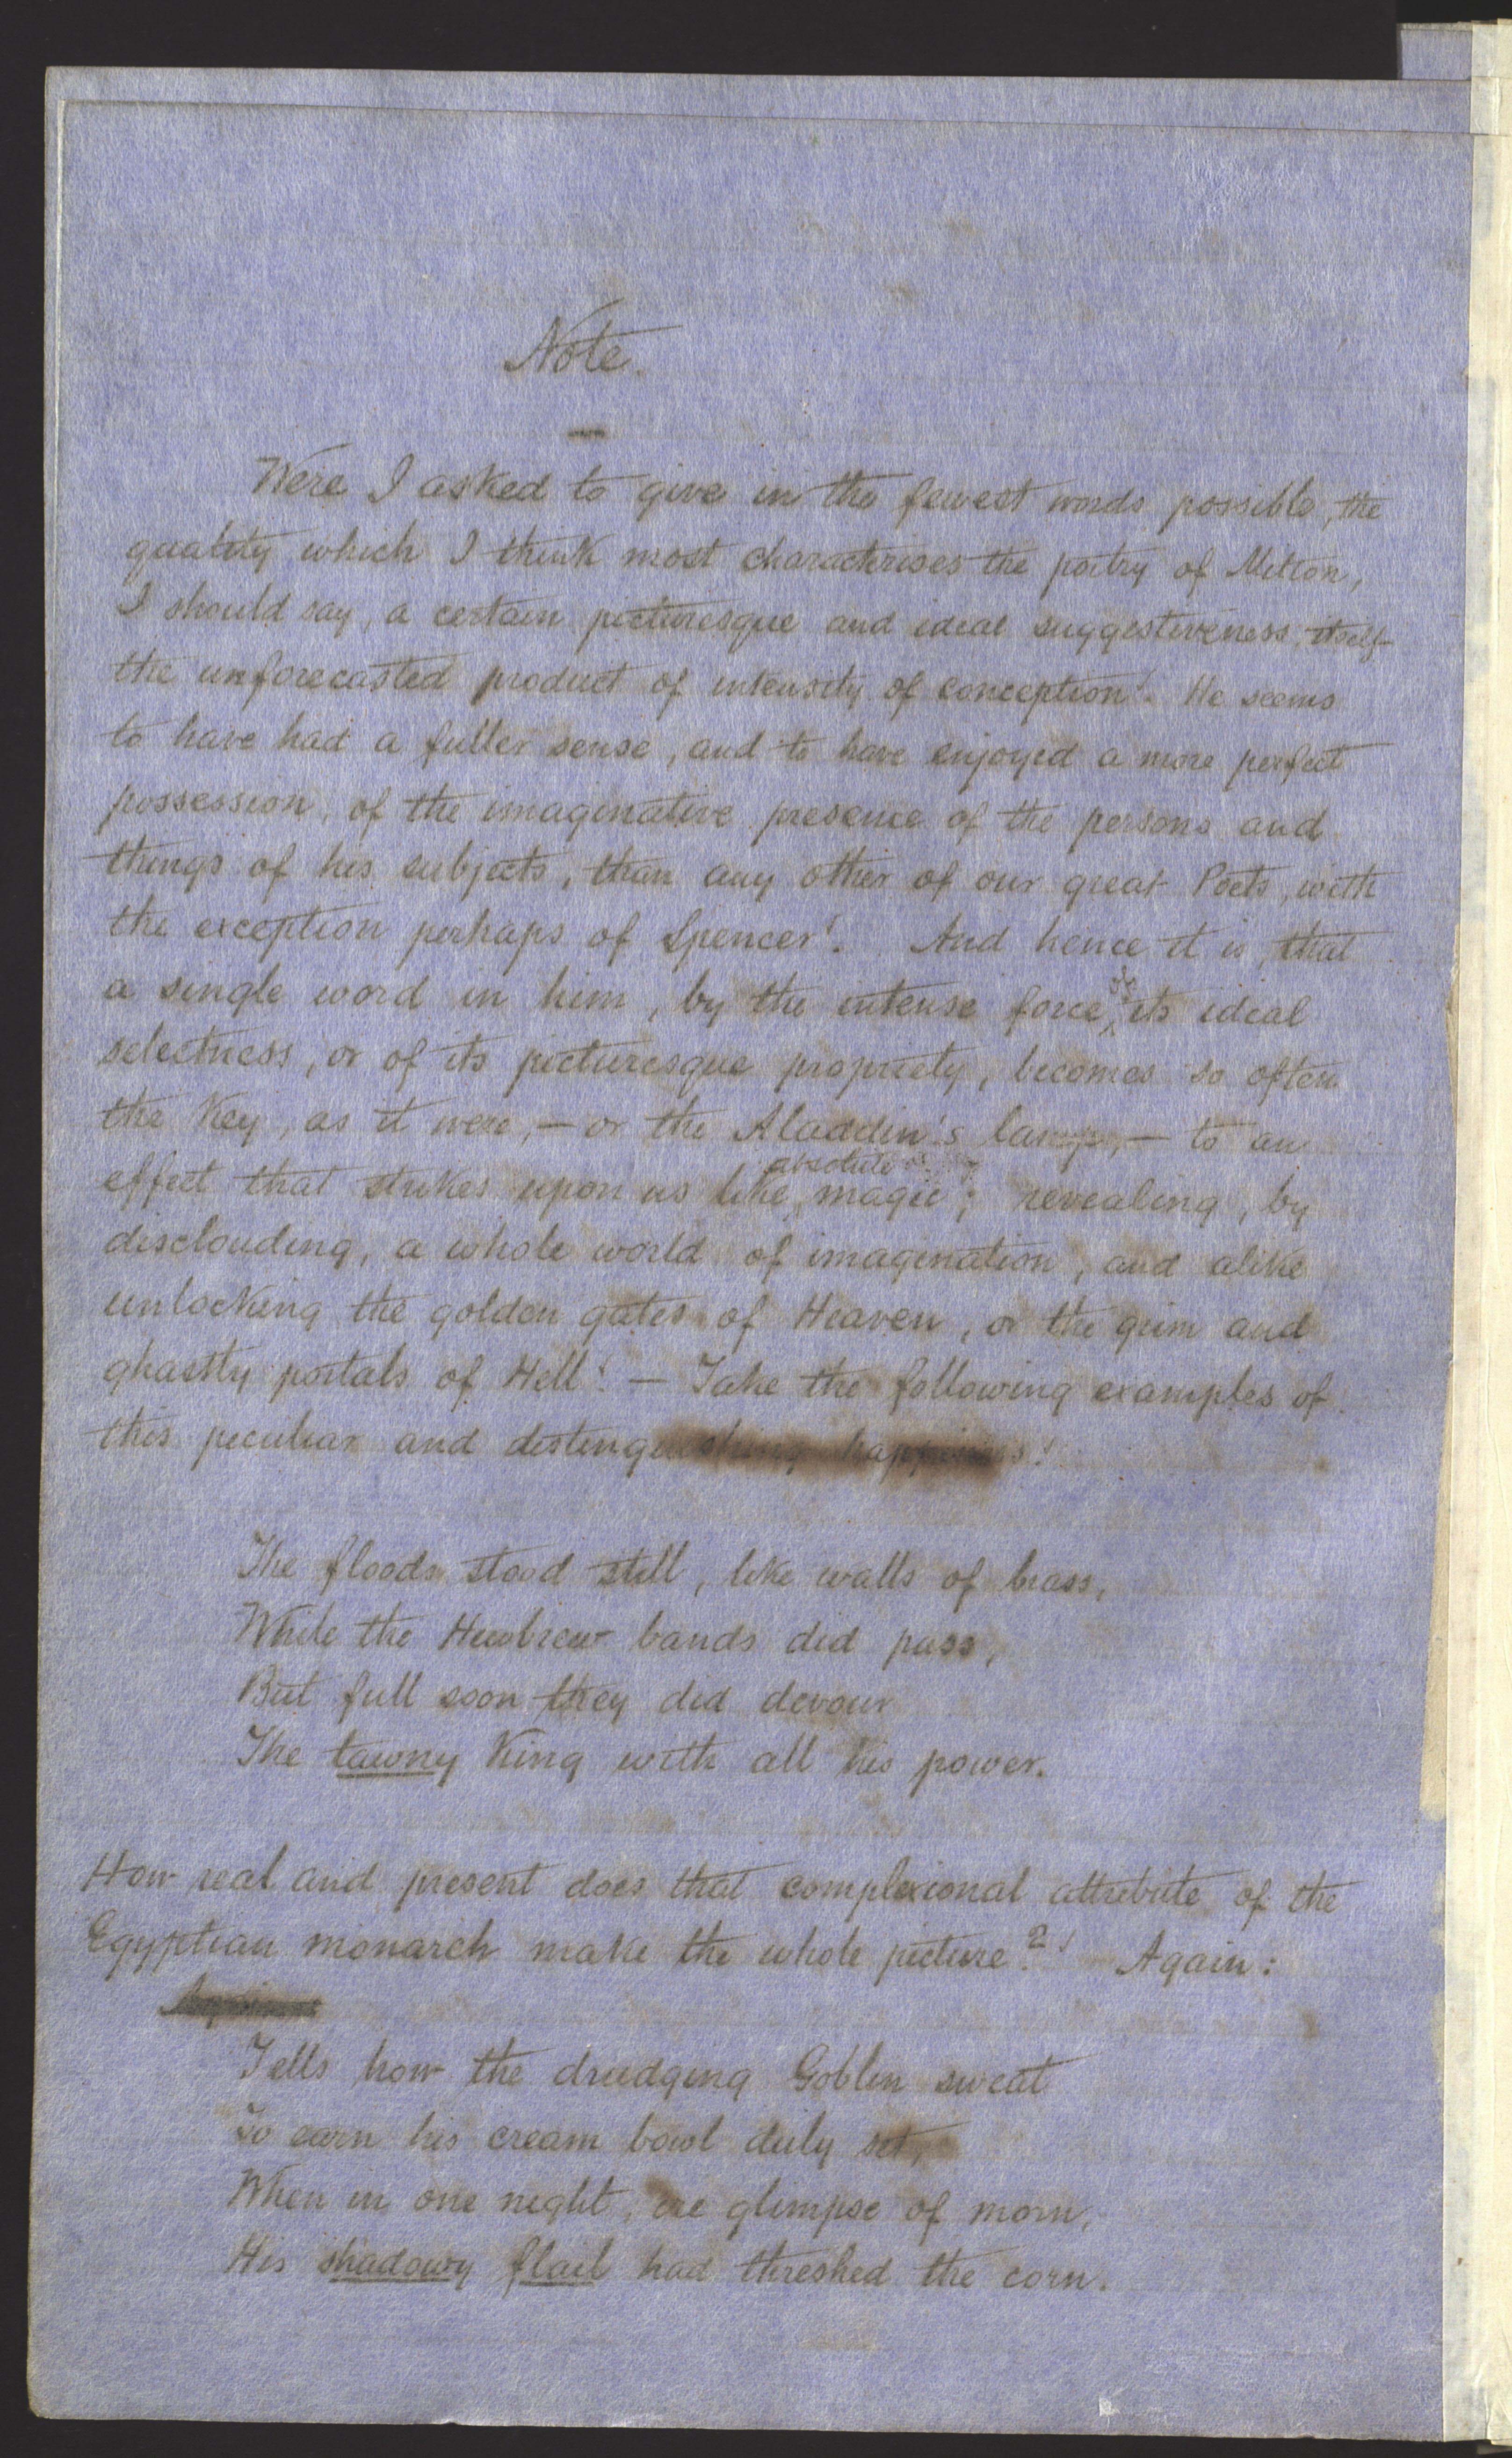 Note.
Were I asked to give in the fewest words possible, the
quality which I think most characterises the poetry of Milton,
I should say, a certain picturesque and ideal suggestiveness, itself
the unforecasted product of intensity of conception! He seems
to have had a fuller sense, and to have enjoyed a more perfect
possession, of the imaginative presence of the persons and
things of his subjects, than any other of our great Poets, with
the exception perhaps of Spencer! And hence it is, that
a single word in him, by the intense force of its ideal
selectness, or of its picturesque propriety, becomes so often
the Key, as it were, — or the Aladdin's lamp, — to an
effect that strikes upon us like absolute magic; revealing, by
disclouding, a whole world of imagination, and alike
unlocking the golden gates of Heaven, or the grim and
ghastly portals of Hell! — Take the following examples of
this peculiar and distinguishing happiness!
The floods stood still, like walls of brass,
While the Hewbrew bands did pass,
But full soon they did devour
The tawny King with all his power.
How real and present does that complexional attribute of the
Egyptian monarch make the whole picture?! Again:
Tells how the drudging Goblin sweat
To earn his cream bowl duly set,
When in one night, ere glimpse of morn,
His shadowy flail had threshed the corn.